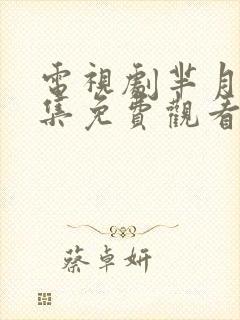 電視劇羋月
集免費觀看
蔡卓妍